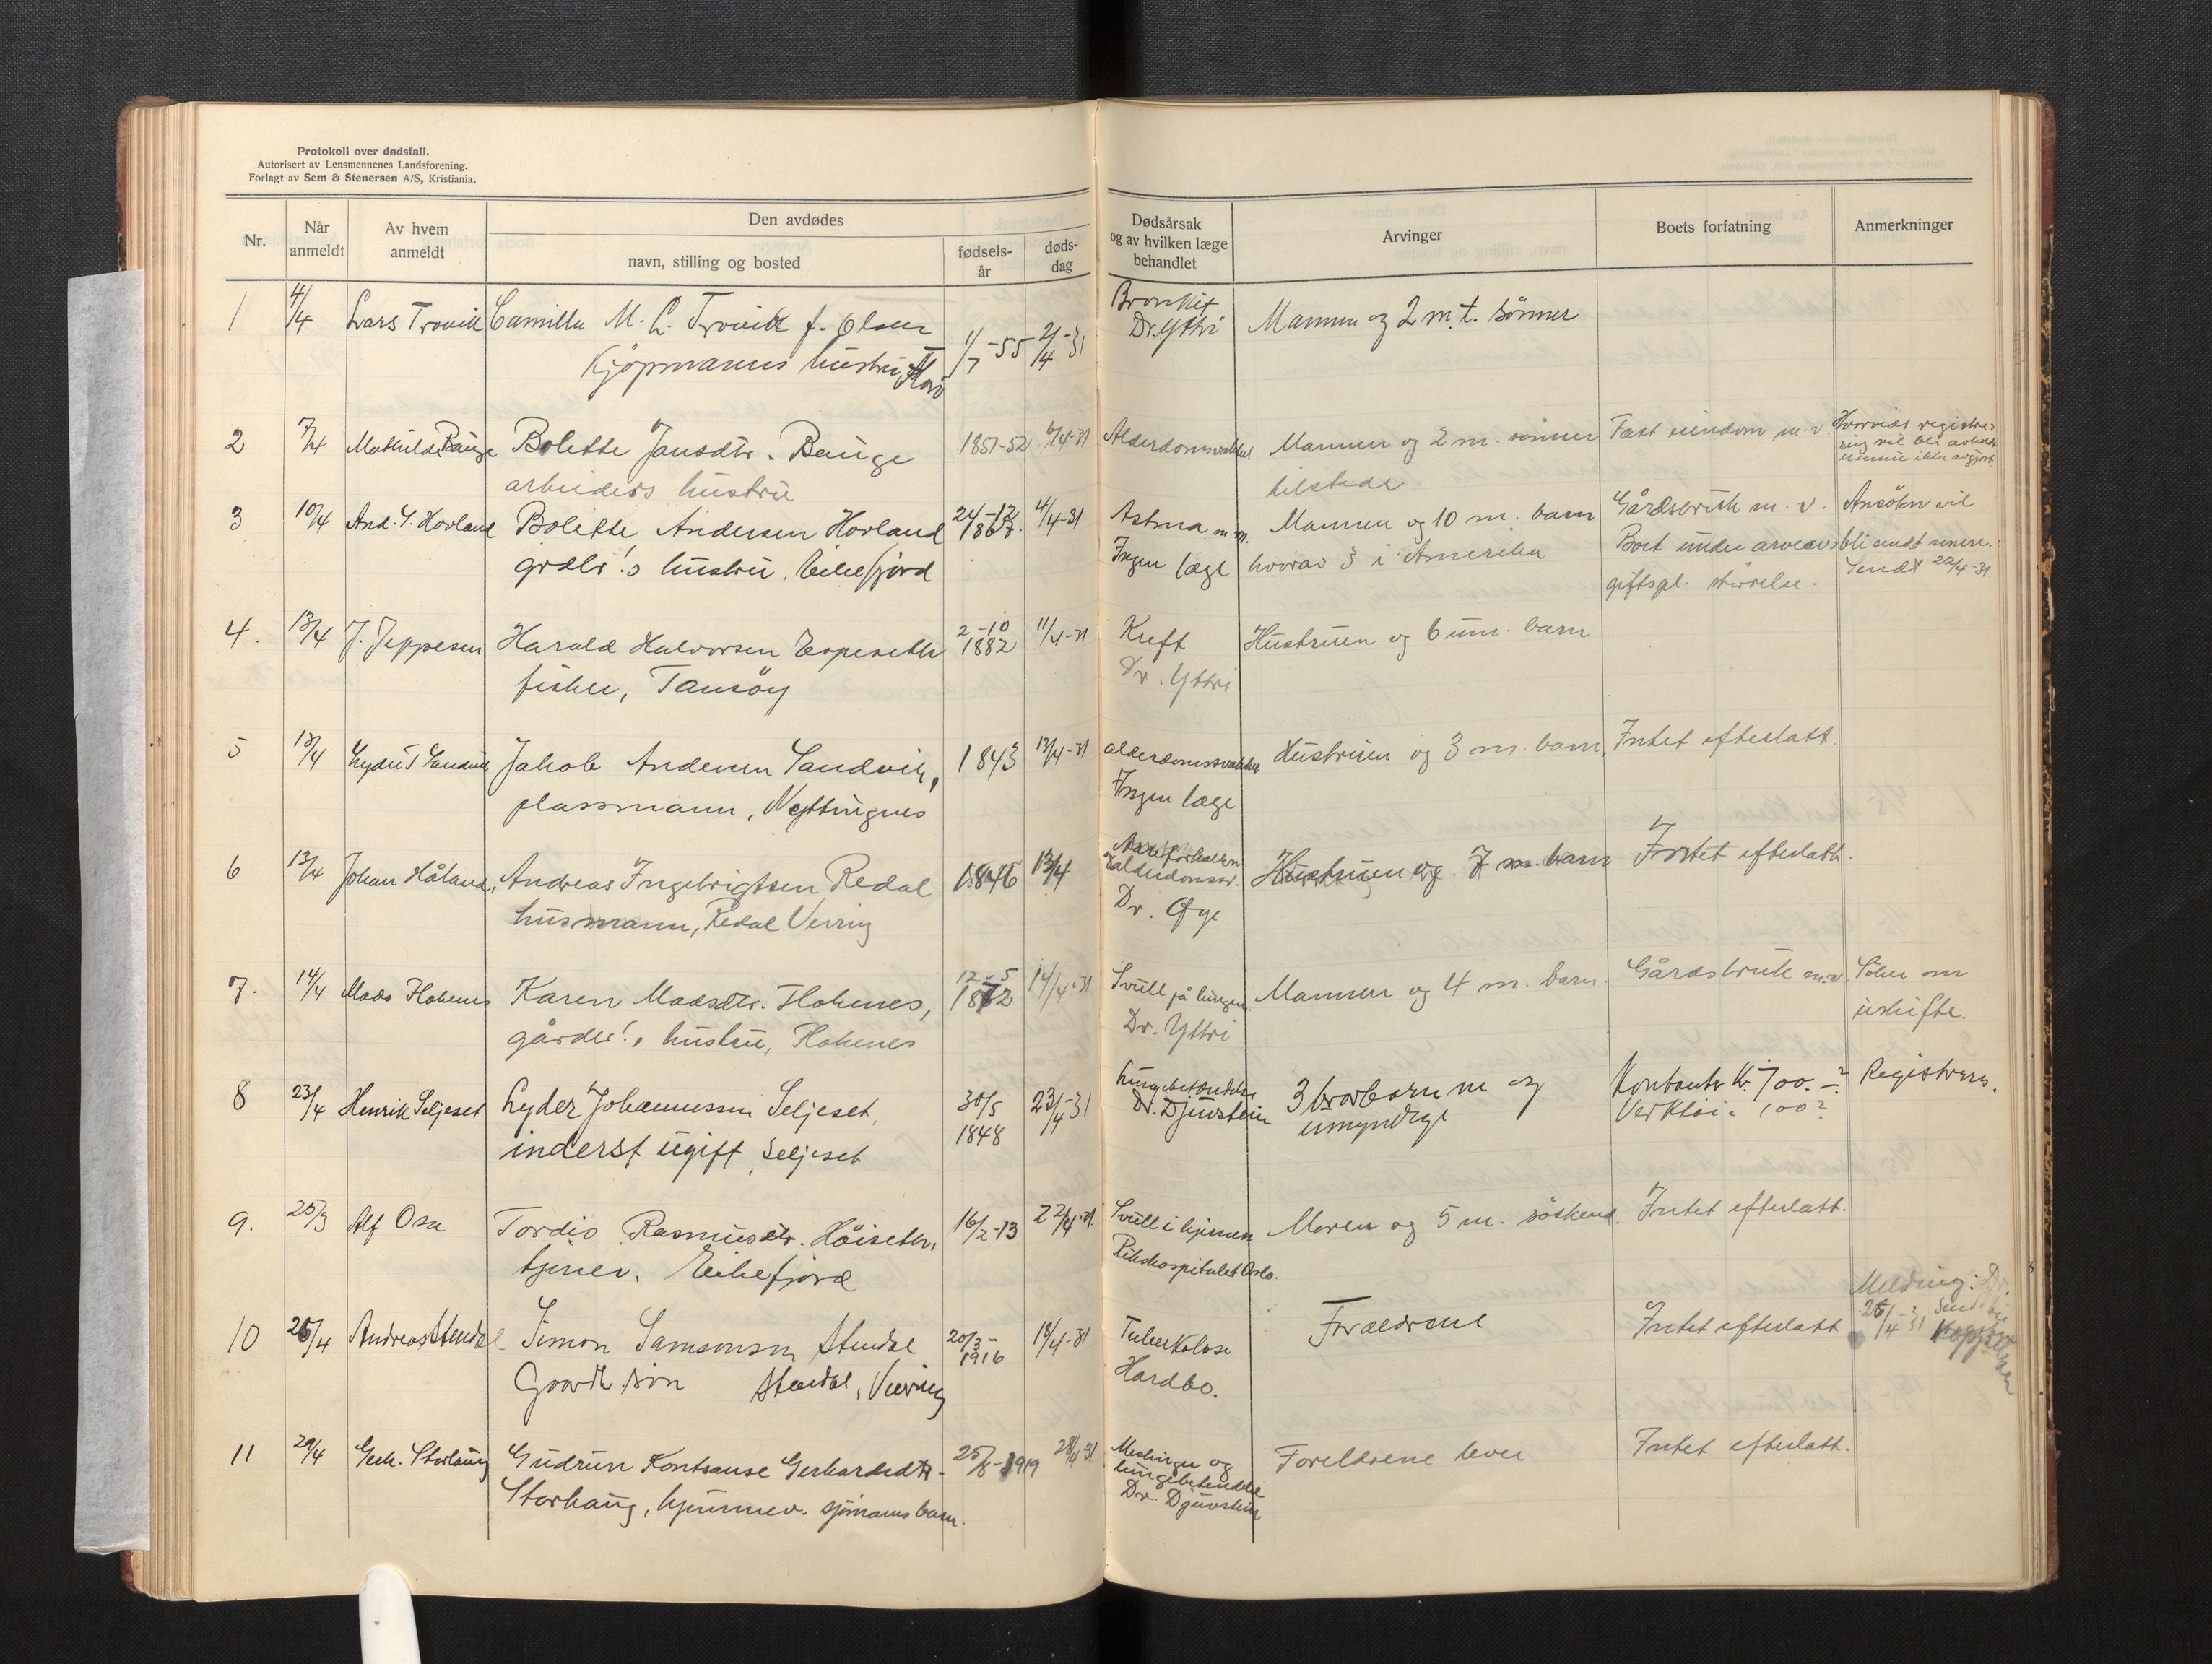 Protokoll over dødsfall.
Autorisert av Lensmennenes Landsforening.
Forlagt av Sem & Stenersen A/S, Kristiania.
Nr.
Når anmeldt
Av hvem anmeldt
Den avdødes
navn, stilling og bosted
fødsels-år
døds-dag
Dødsårsak og av hvilken læge behandlet
Arvinger
Boets forfatning
Anmerkninger
1 4/4 Lars Trovik Camilla M. L. Trovik f. Olsen 1/7-55 2/4-31 Bronkit Mannen og 2 m.t. sönner
Kjöpmanns hustru, Florö Dr. Yttri
2 7/4 Mathilde Bauge Bolette Jansdtr. Bauge 1851-52 6/4-31 Alderdomsvakhet Mannen og 2 m. sönner Fast eiendom m.v. Hvorvidt registre-
ring vil bli avholdt
arbeiders hustru tilstede ennu ikke avgjort.
3 10/4 And. Y. Hovland Bolette Andersen Hovland 24-12 1868. 4/4-31 Astma m.m. Mannen og 10 m. barn Gårdsbruk m. v. Ansökn vil
grdbr!s hustru, Eikefjord Ingen læge hvorav 3 i Amerika Boet under arveav- bli sendt senere.
giftspl. störrelse. Sendt 22/4-31.
4. 13/4 J. Jeppesen Harald Halvorsen Espeseth 2-10 1882 11/4-31 Kreft Hustruen og 6 um. barn
fisker, Tansöy Dr. Yttri
5 13/4 Lyder J Sandvik Jakob Andersen Sandvik, 1843 13/4-31 alderdomssvakhet Hustruen og 3 m. barn. Intet efterlatt.
plassmann, Nyttingnes Ingen læge
6 13/4 Johan Håland, Andreas Ingebrigtsen Redal 1846 13/4 Hustruen og 7 m. barn Intet efterlatt.
og alderdomssv.
husmann, Redal Vevring Dr. Øye
7. 14/4 Mads Hokenes Karen Madsdtr. Hokenes, 12-5 1872 14/4-31 Svull på lungen Mannen og 4 m. barn. Gårdsbruk m.v. Söker om
gårdbr!s hustru, Hokenes Dr. Yttri uskifte.
8 23/4 Henrik Seljeset Lyder Johannessen Seljeset, 30/5 1848 23/4-31 Lungebetendelse 3 brorborn m og Kontanter kr. 700.-? Registreres.
inderst ugift, Seljeset Dr. Djuvstein umyndige Verktöi: 100?
9. 25/3 Alf Osa Tordis Rasmusdtr. Höiseth, 16/2-13 22/4-31. Svull i hjernen Moren og 5 m. söskend. Intet efterlatt.
tjener, Eikefjord Rikshospitalet Oslo.
10 25/4 Andreas Stendal Simon Samsonsen Stendal 20/3- 1916 18/4-31 Tuberkolose Foraeldrene Intet efterlatt Melding:
25/4-31
Gaardbr. sön Stendal, Vevring Hardbo.
11 29/4 Gerh. Storhaug Gudrun Konstanse Gerhardsdtr. 25/8-1919 28/4-31. Meslinger og Foreldrene lever Intet efterlatt.
lungebetendelse
Storhaug, hjemmev. sjömanns barn. Dr. Djuvstein